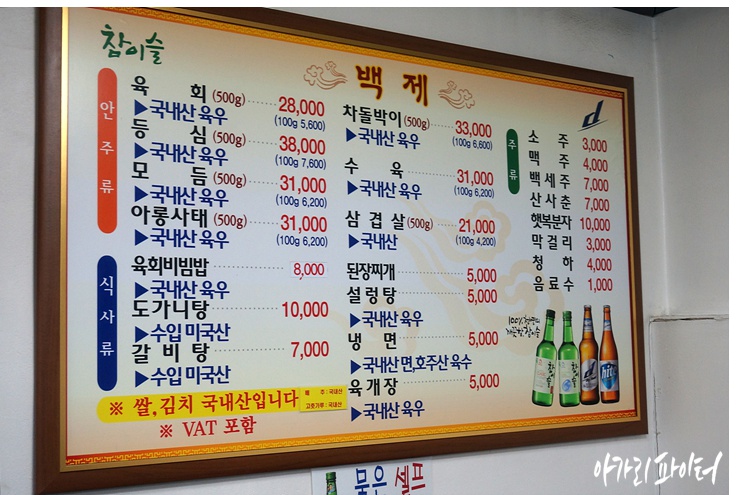 참이슬
백 제
안주류
육 회 (500g) 28,000
▶국내산 육우 (100g 5,600)
등 심 (500g) 38,000
▶국내산 육우 (100g 7,600)
모 듬 (500g) 31,000
▶국내산 육우 (100g 6,200)
아롱사태 (500g) 31,000
▶국내산 육우 (100g 6,200)
차돌박이 (500g) 33,000
▶국내산 육우 (100g 6,600)
수 육 31,000
▶국내산 육우 (100g 6,200)
삼 겹 살 (500g) 21,000
▶국내산 (100g 4,200)
식사류
육회비빔밥 8,000
▶국내산 육우
도가니탕 10,000
▶수입 미국산
갈 비 탕 7,000
▶수입 미국산
된장찌개 5,000
설렁탕 5,000
▶국내산 육우
냉 면 5,000
▶국내산 면,호주산 육수
육개장 5,000
▶국내산 육우
주류
소 주 3,000
맥 주 4,000
백 세 주 7,000
산 사 춘 7,000
햇복분자 10,000
막 걸 리 3,000
청 하 4,000
음 료 수 1,000
참이슬
hite
※ 쌀,김치 국내산입니다
주 : 국내산
고춧가루 : 국내산
※ VAT 포함
물은 셀프
아가리파이터